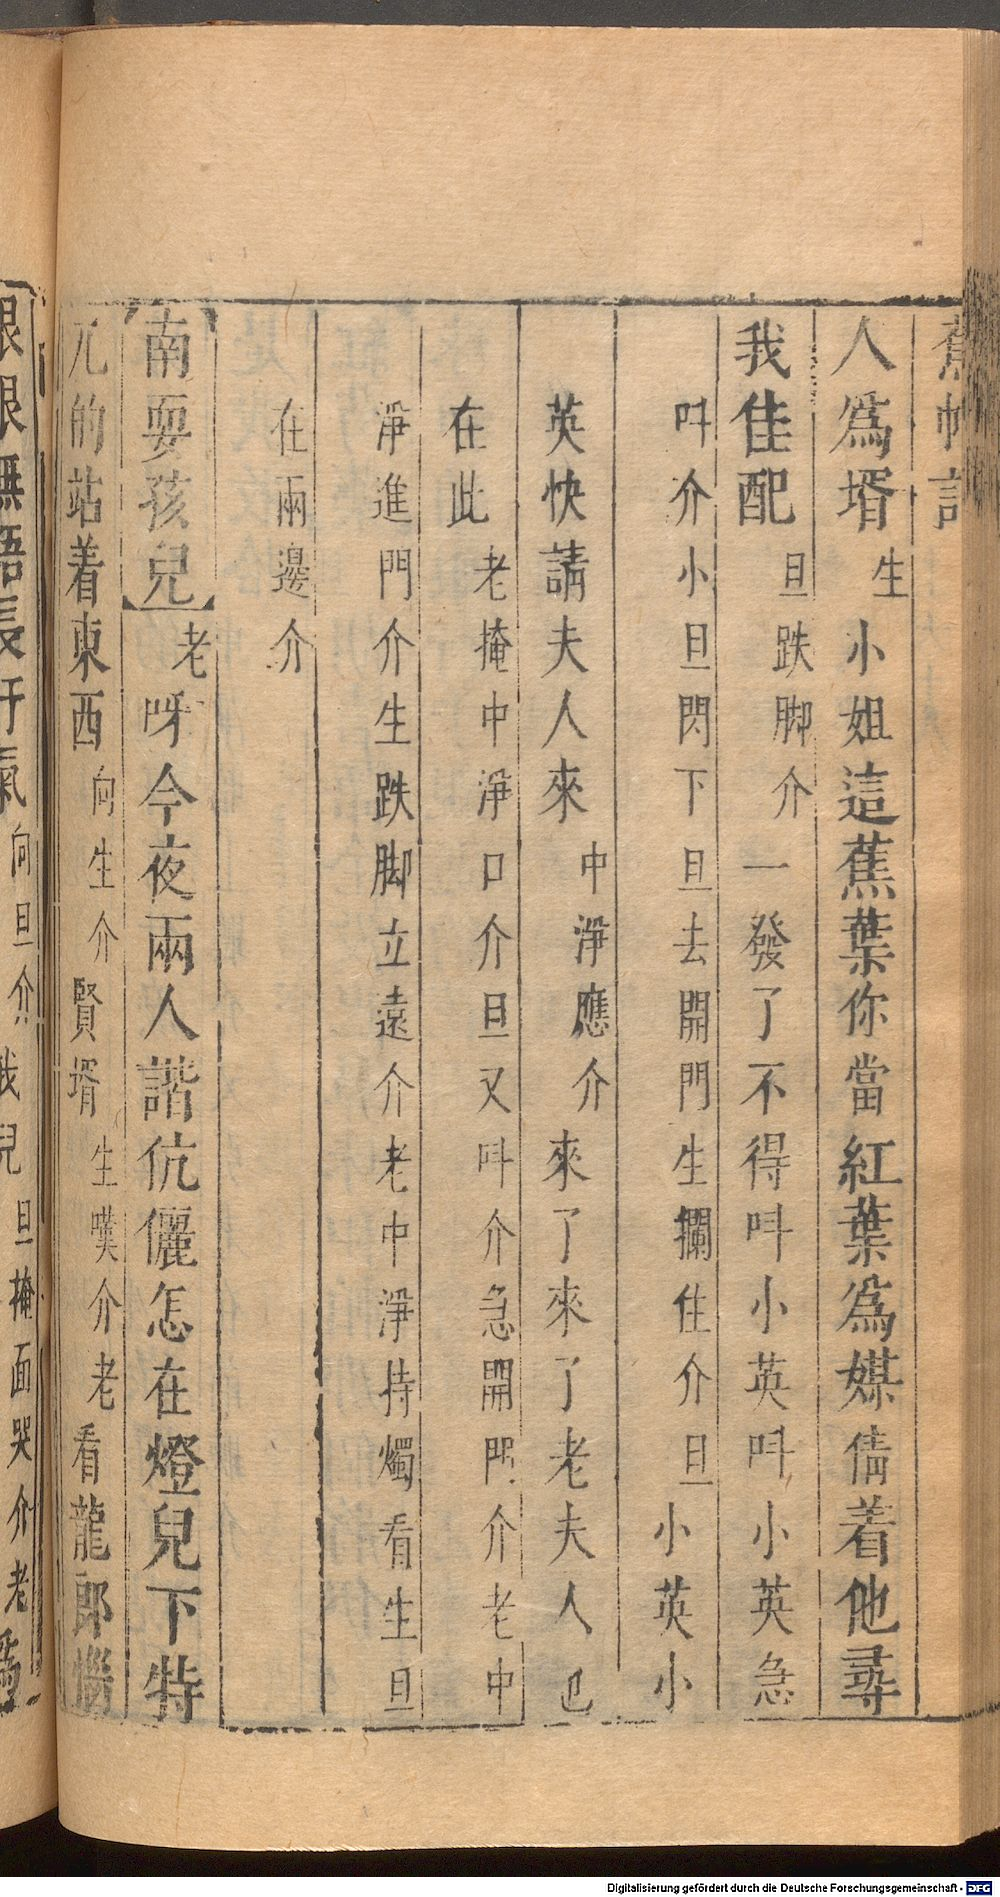 蕉帕記
人爲壻生小姐這蕉葉你當紅葉爲媒倩着他尋
我佳配旦跌脚介一發了不得叫小英叫小英急
叫介小旦閃下旦去開門生攔住介旦小英小
英快請夫人來中淨應介來了來了老夫人已
在此老掩中淨口介旦又叫介急開門介老中
淨進門介生跌脚立遠介老中淨持燭看生旦
在兩邊介
南耍孩兒老呀今夜兩人諧伉儷怎在燈兒下特
兀的站着東西向生介賢壻生嘆介老看龍郎惱
眼眼無語長吁氣向旦介我兒旦掩面哭介老爲
Digitalisierung gefördert durch die Deutsche Forschungsgemeinschaft - DFG